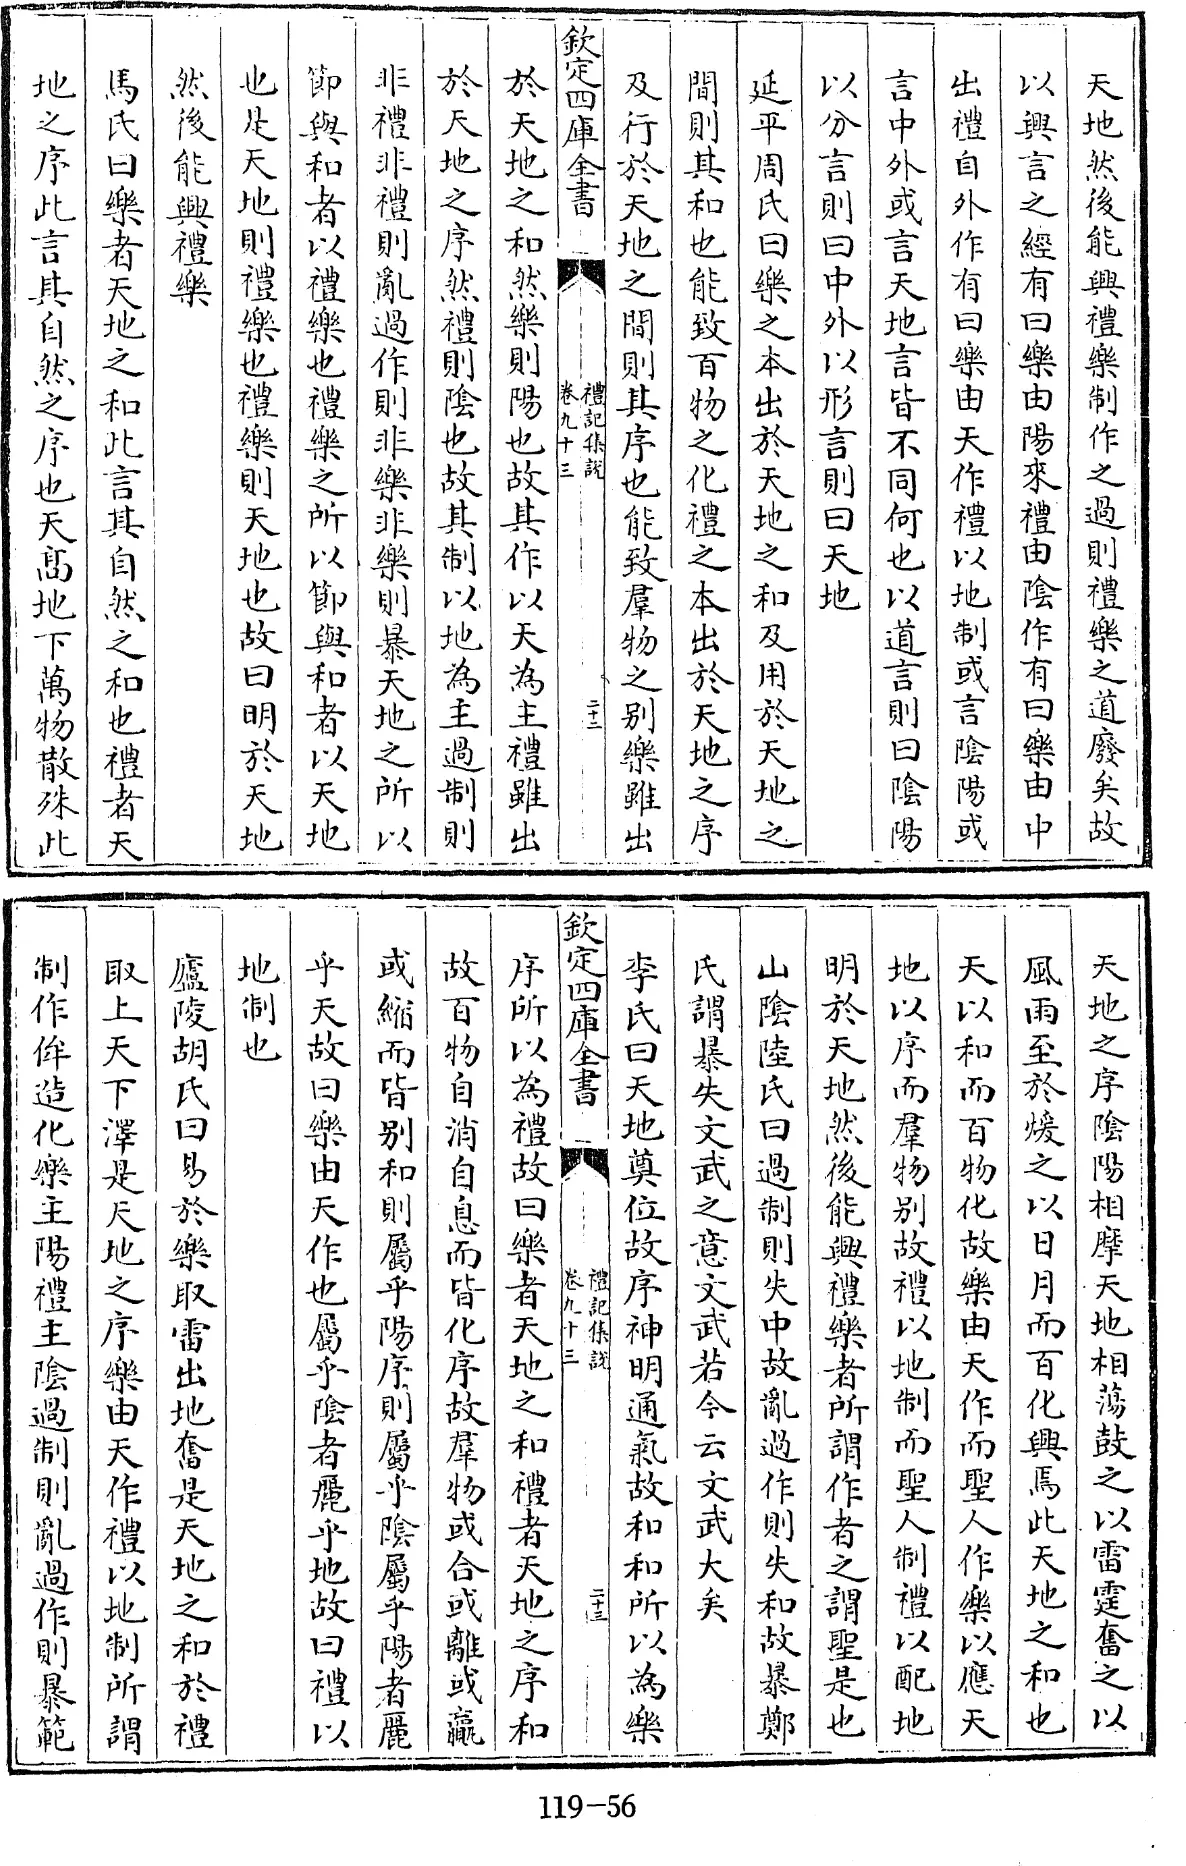 天地然後能興禮樂制作之過則禮樂之道廢矣故
以興言之經有曰樂由陽來禮由陰作有曰樂由中
出禮自外作有曰樂由天作禮以地制或言陰陽或
言中外或言天地言皆不同何也以道言則曰陰陽
以分言則曰中外以形言則曰天地
延平周氏曰樂之本出於天地之和及用於天地之
間則其和也能致百物之化禮之本出於天地之序
及行於天地之間則其序也能致羣物之别樂雖出
欽定四庫全書
禮記集説
卷九十三
二十二
於天地之和然樂則陽也故其作以天為主禮雖出
於天地之序然禮則陰也故其制以地為主過制則
非禮非禮則亂過作則非樂非樂則暴天地之所以
節與和者以禮樂也禮樂之所以節與和者以天地
也是天地則禮樂也禮樂則天地也故曰明於天地
然後能興禮樂
馬氏曰樂者天地之和此言其自然之和也禮者天
地之序此言其自然之序也天髙地下萬物散殊此
天地之序陰陽相摩天地相蕩鼓之以雷霆奮之以
風雨至於煖之以日月而百化興焉此天地之和也
天以和而百物化故樂由天作而聖人作樂以應天
地以序而羣物别故禮以地制而聖人制禮以配地
明於天地然後能興禮樂者所謂作者之謂聖是也
山陰陸氏曰過制則失中故亂過作則失和故暴鄭
氏謂暴失文武之意文武若今云文武大矣
李氏曰天地奠位故序神明通氣故和和所以為樂
欽定四庫全書
禮記集説
卷九十三
二十三
序所以為禮故曰樂者天地之和禮者天地之序和
故百物自消自息而皆化序故羣物或合或離或贏
或縮而皆别和則屬乎陽序則屬乎陰屬乎陽者麗
乎天故曰樂由天作也屬乎陰者麗乎地故曰禮以
地制也
廬陵胡氏曰易於樂取雷出地奮是天地之和於禮
取上天下澤是天地之序樂由天作禮以地制所謂
制作侔造化樂主陽禮主陰過制則亂過作則暴範
119-56